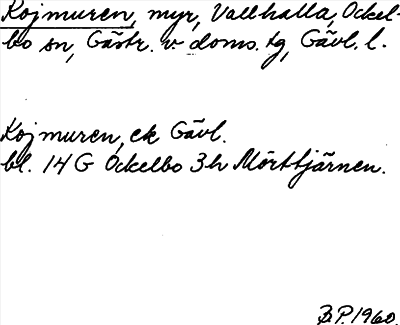 Kojmuren, myr, Vallhalla, Ockel-
bo sn, Gästr. v doms. tg, Gävl. l.
Kojmuren, ek Gävl.
bl. 14 G Ockelbo 3h Mörttjärnen.
B.P. 1960.